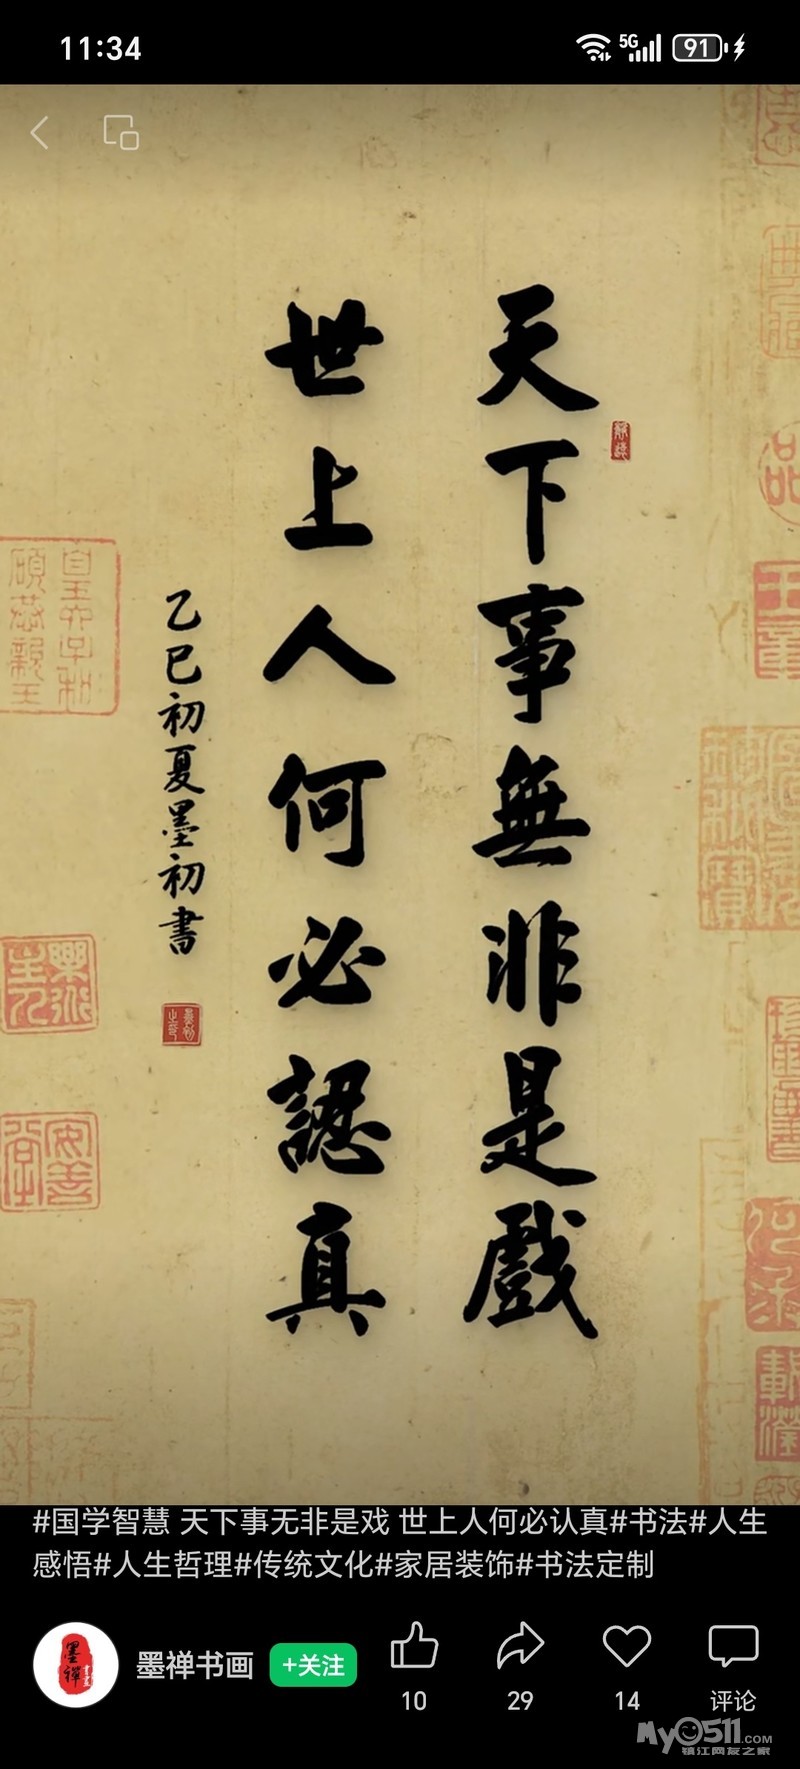 11:34
5G
91
天下事無非是戲
世上人何必認真
乙巳初夏墨初書
#国学智慧 天下事无非是戏 世上人何必认真#书法#人生
感悟#人生哲理#传统文化#家居装饰#书法定制
墨禅书画
+关注
10
29
14
评论
My0511.COM
镇江网友之家